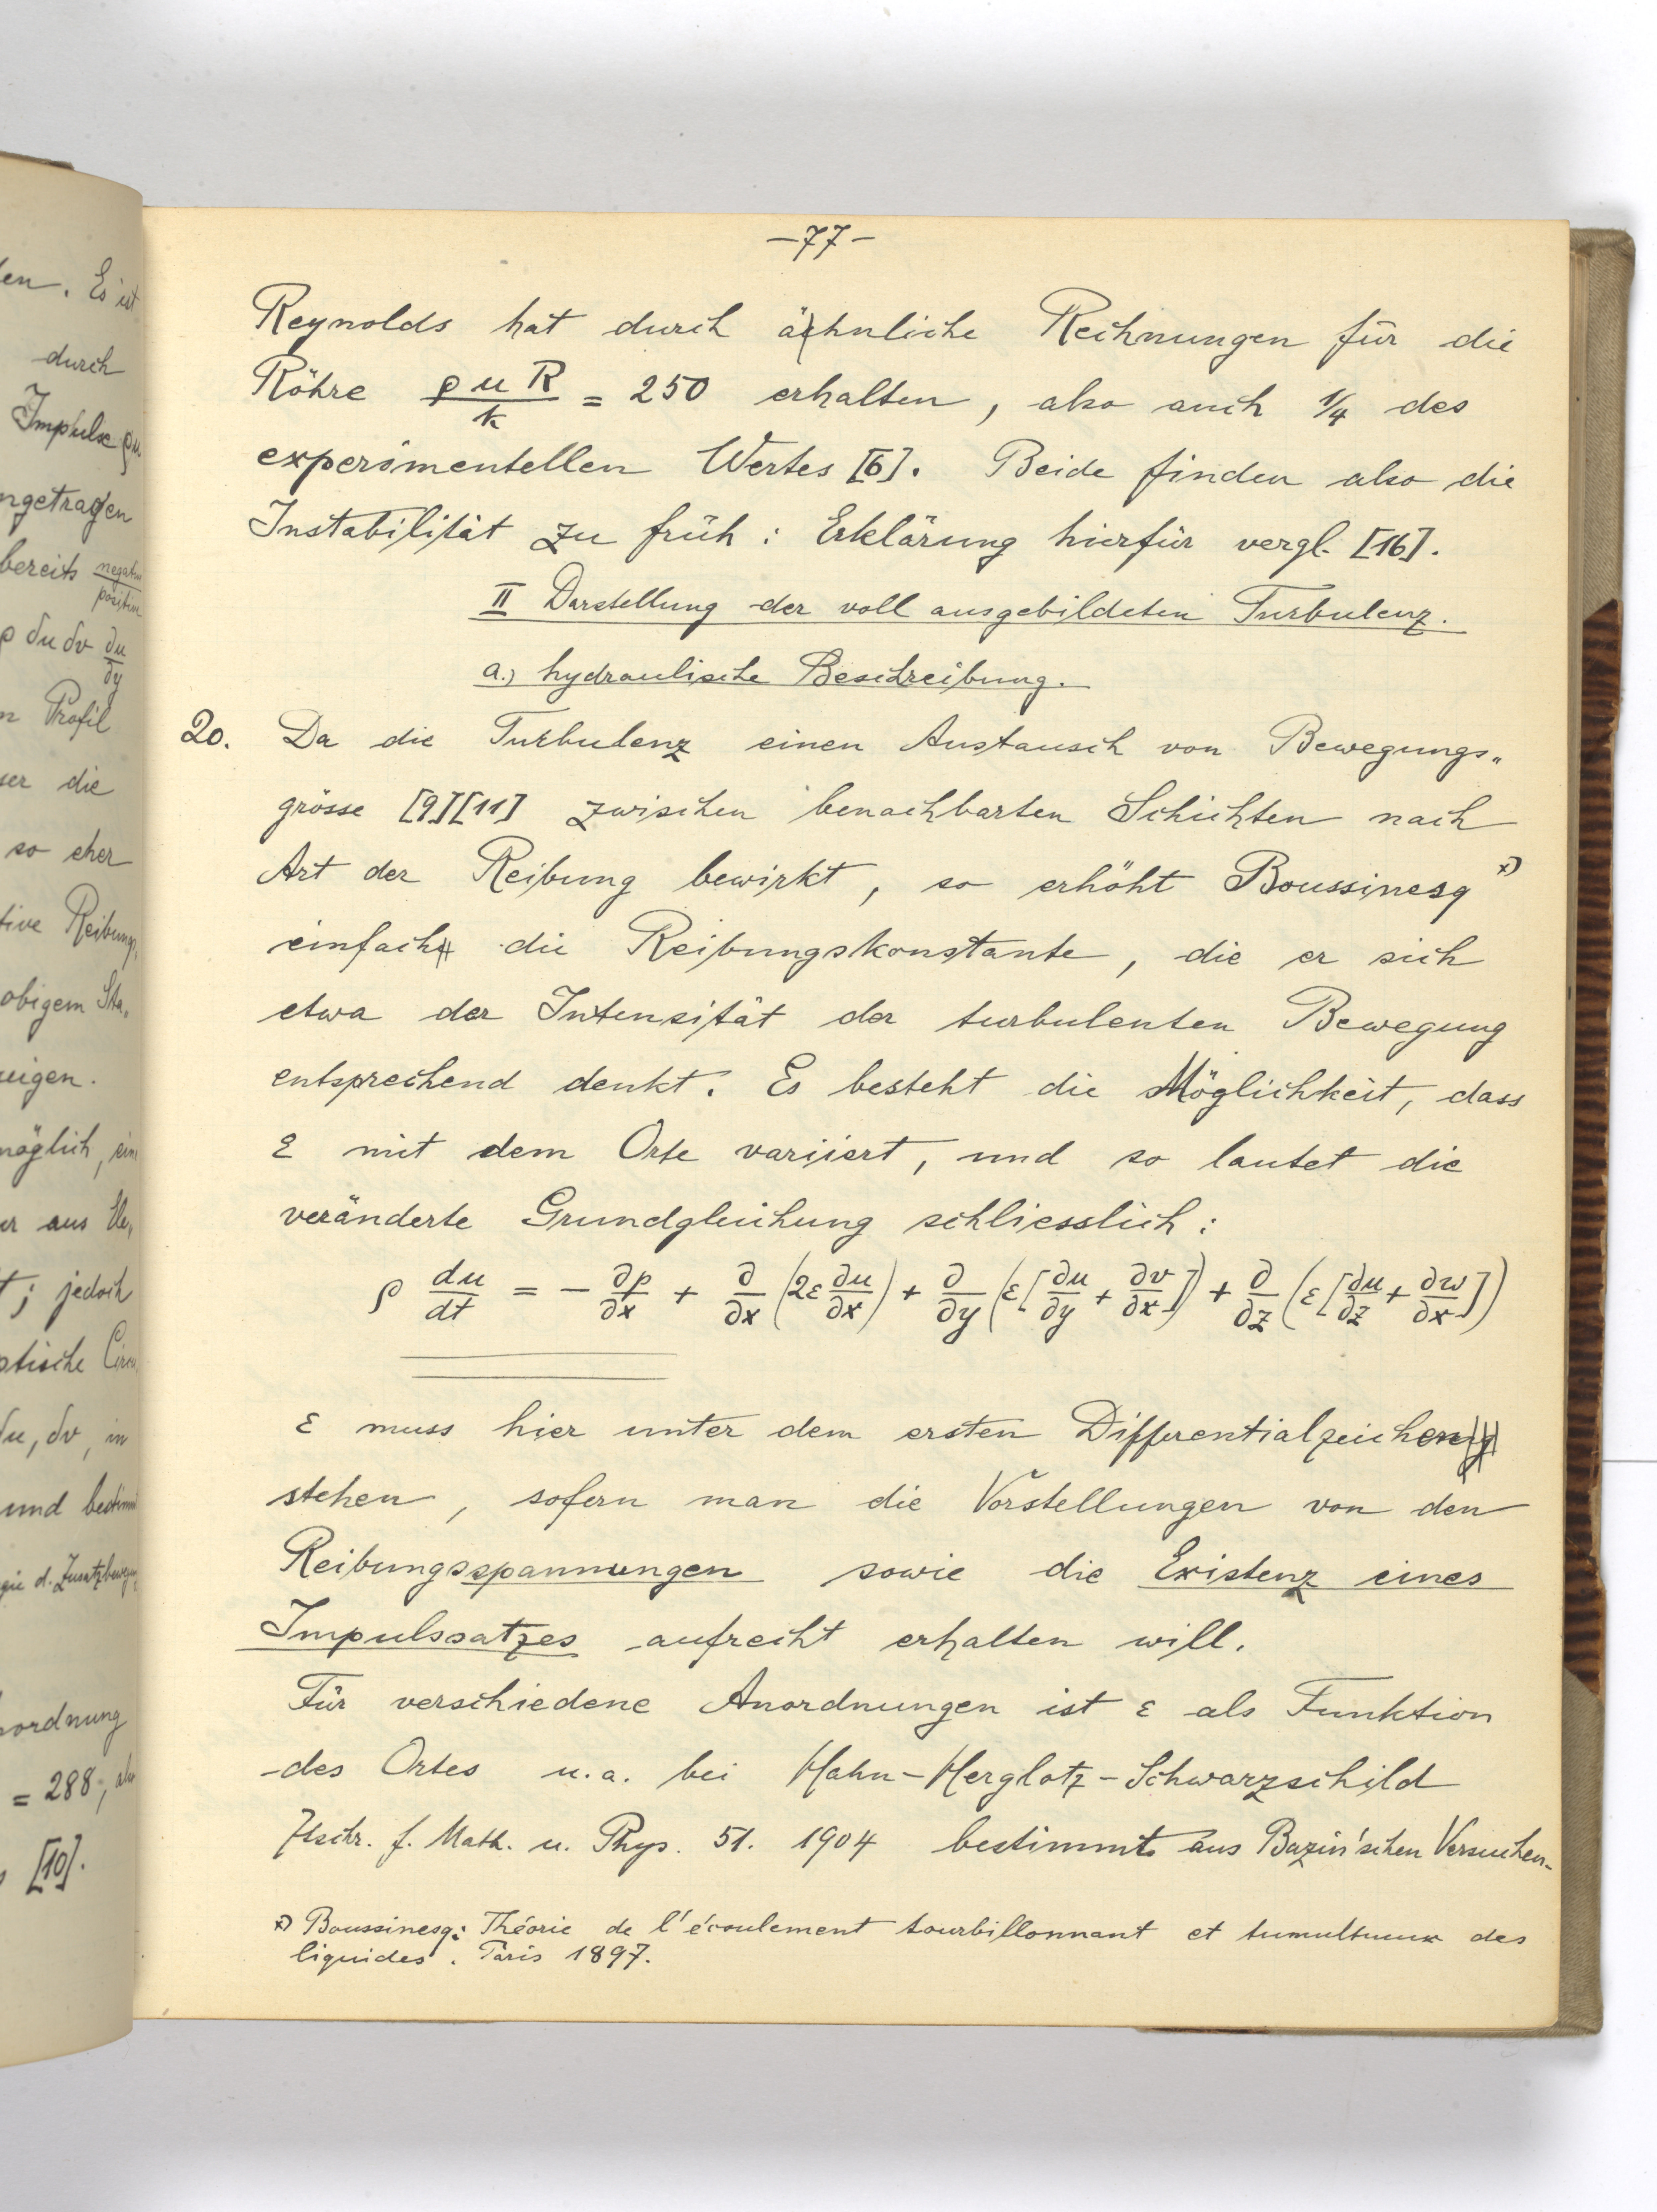 en. Es ist
durch
Impulse ρu
ngetragen
bereits negativ
positiv
ρ δu δv ∂u/∂y
n Profil
ser die
so eher
tive Reibungs„
obigem Sta„
eigen.
möglich, ein
er aus He„
t; jedoch
ptische Circu
δu, δv, in
und bestimm
gie d. Zusatzbeweg
nordnung
= 288; also
[10].
—77—
Reynolds hat durch ähnliche Rechnungen für die
Röhre ρuR/k = 250 erhalten, also auch 1/4 des
experimentellen Wertes [6]. Beide finden also die
Instabilität zu früh: Erklärung hierfür vergl. [16].
II Darstellung der voll ausgebildeten Turbulenz.
a.) hydraulische Beschreibung.
20. Da die Turbulenz einen Austausch von Bewegungs„
grösse [9][11] zwischen benachbarten Schichten nach
Art der Reibung bewirkt, so erhöht Boussinesq x)
einfach die Reibungskonstante, die er sich
etwa der Intensität der turbulenten Bewegung
entsprechend denkt. Es besteht die Möglichkeit, dass
ε mit dem Orte variiert, und so lautet die
veränderte Grundgleichung schliesslich:
ρ du/dt = − ∂p/∂x + ∂/∂x (2ε ∂u/∂x) + ∂/∂y (ε[∂u/∂y + ∂v/∂x]) + ∂/∂z (ε[∂u/∂z + ∂w/∂x])
ε muss hier unter dem ersten Differentialzeichen
stehen, sofern man die Vorstellungen von den
Reibungsspannungen sowie die Existenz eines
Impulssatzes aufrecht erhalten will.
Für verschiedene Anordnungen ist ε als Funktion
des Ortes u.a. bei Hahn-Herglotz-Schwarzschild
Ztschr. f. Math. u. Phys. 51. 1904 bestimmt aus Bazin'schen Versuchen.
x) Boussinesq: Théorie de l'écoulement tourbillonnant et tumultueux des
liquides. Paris 1897.